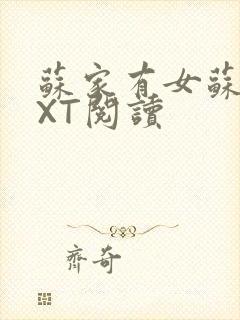 蘇家有女蘇
XT閱讀
齊奇